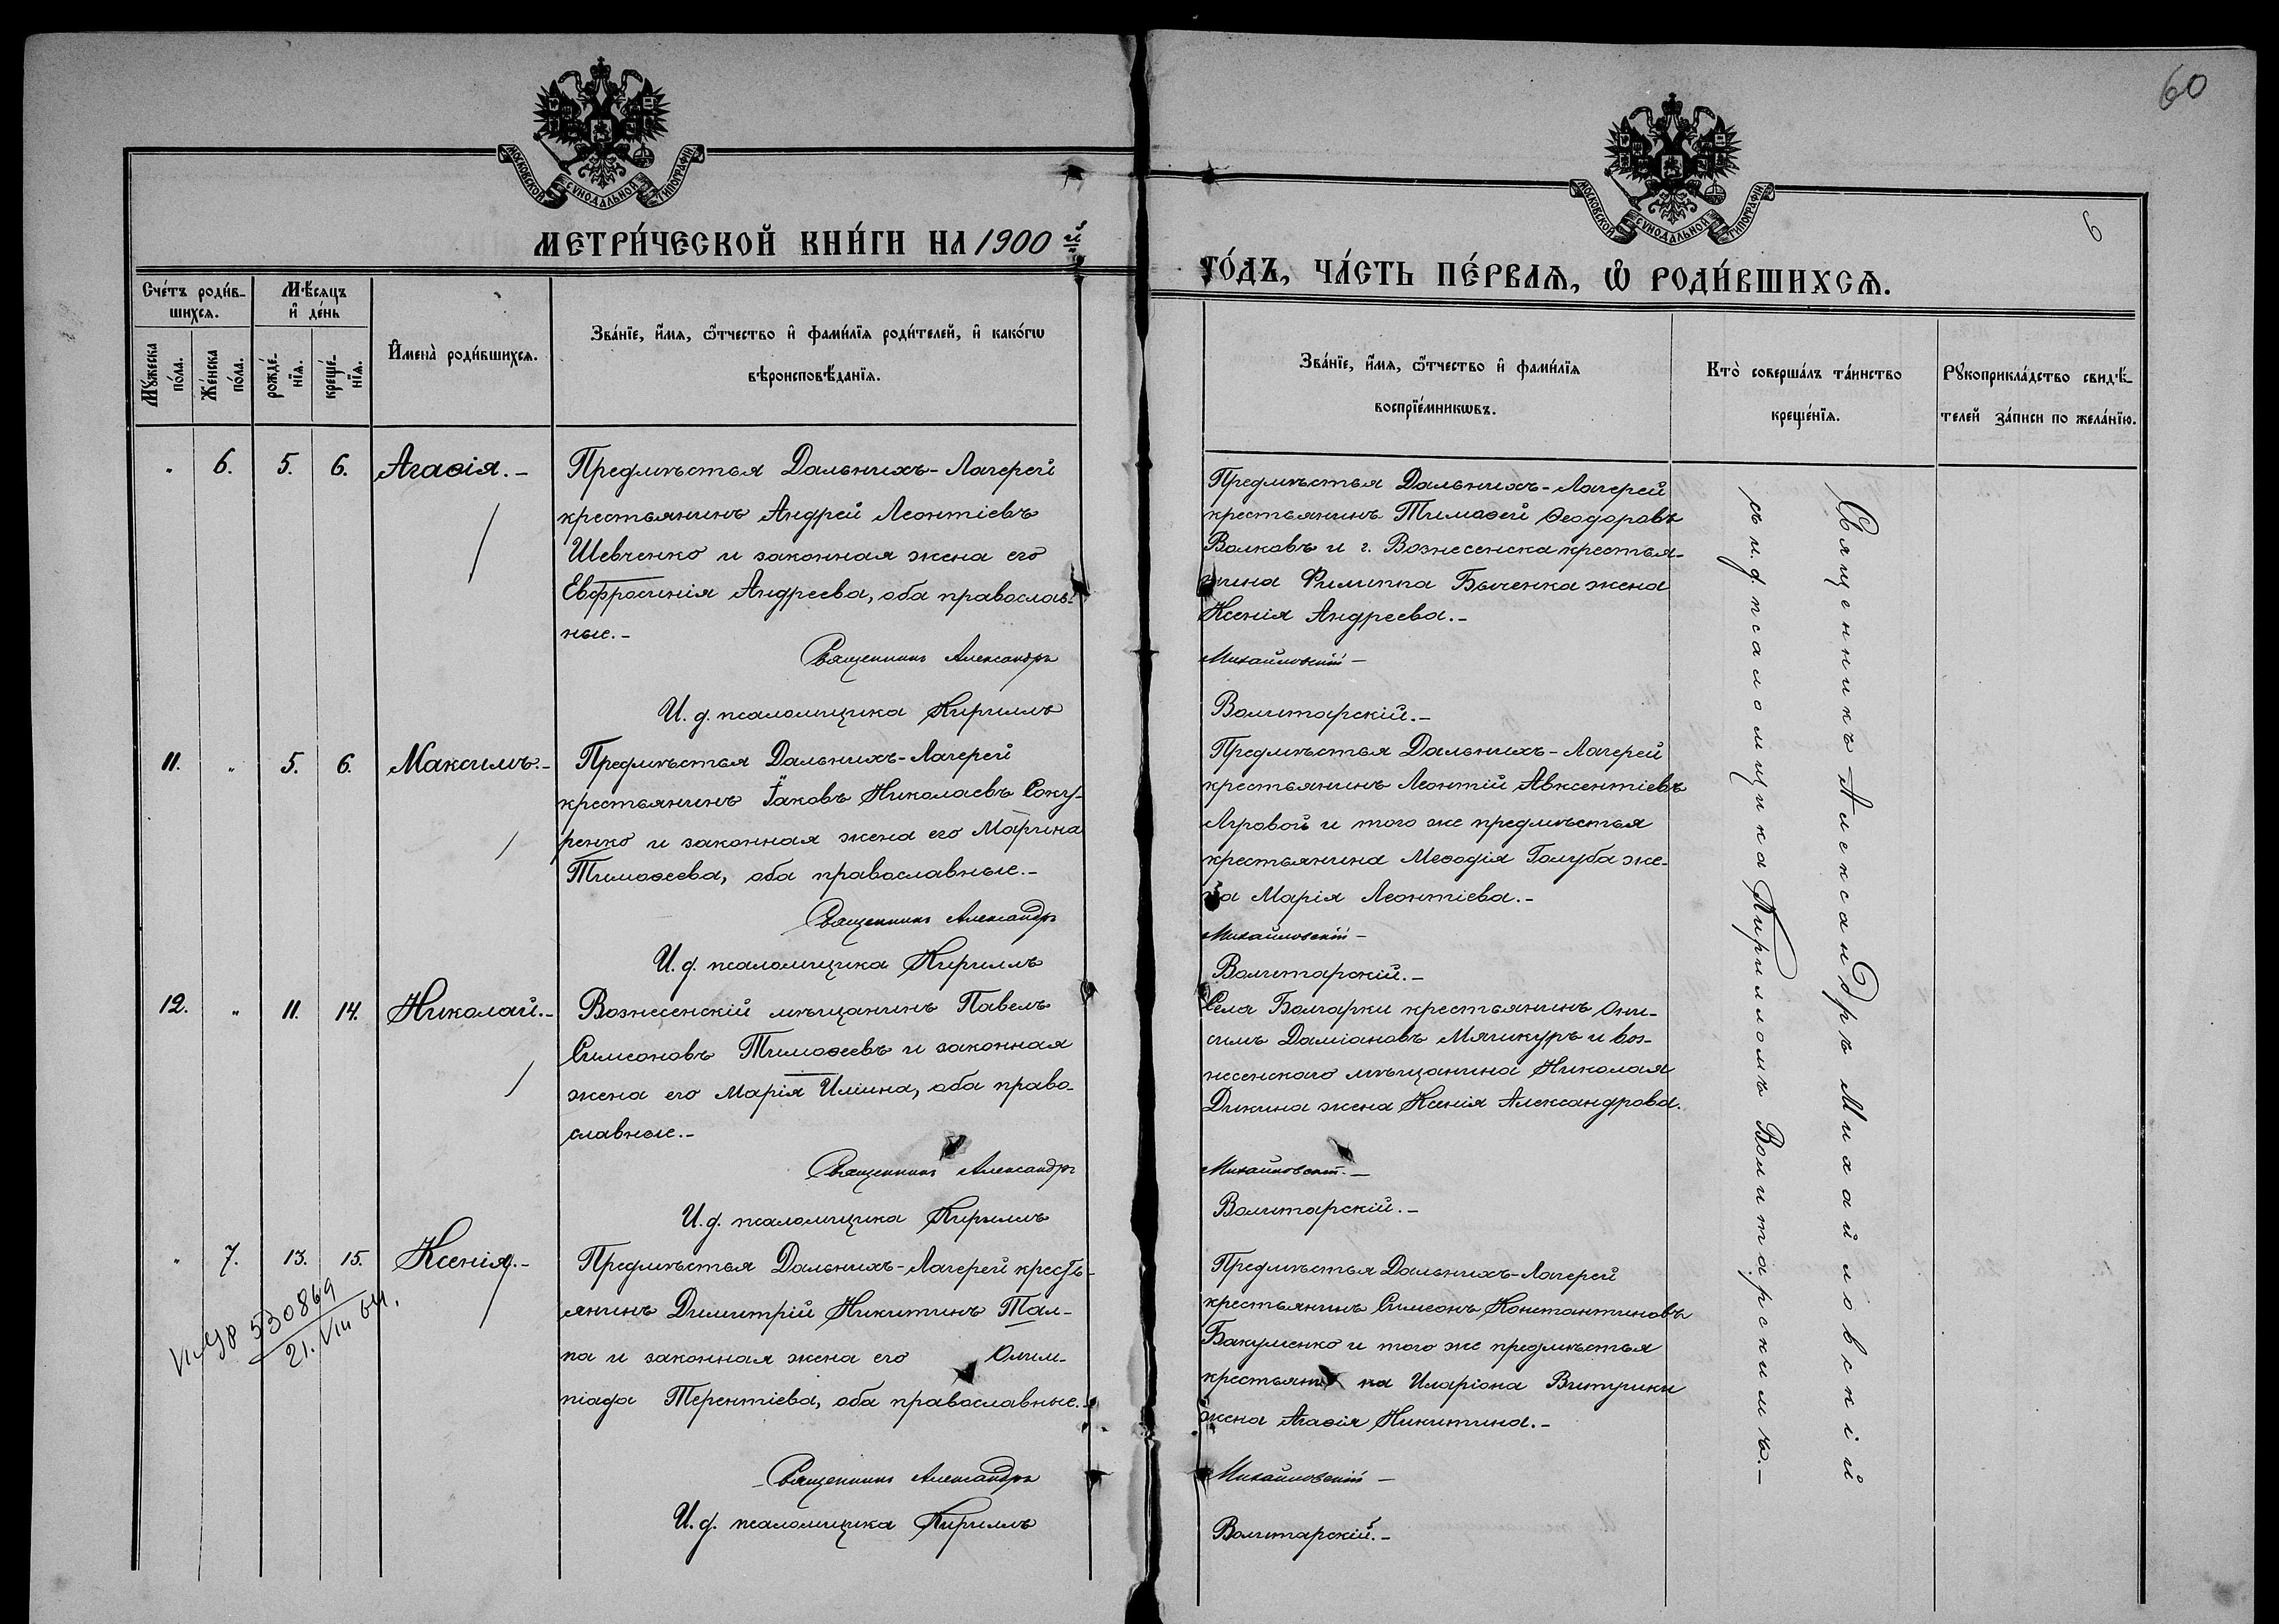 60
МОСКОВСКОЙ СѴНОДАЛЬНОЙ ТИПОГРАФІИ
МОСКОВСКОЙ СѴНОДАЛЬНОЙ ТИПОГРАФІИ
6
МЕТРИ́ЧЕСКОЙ КНИ́ГИ НА 1900 й
ГО́ДЪ, ЧА́СТЬ ПЕ́РВАѦ, Ѡ҆ РОДИ́ВШИХСѦ.
Сче́тъ роди́в-
шихсѧ.
Мѣ́сѧцъ
и҆ де́нь
Мꙋ́жеска
по́ла.
Же́нска
по́ла.
рожде́-
нїѧ.
креще́-
нїѧ.
И҆мена̀ роди́вшихсѧ.
Зва́нїе, и҆́мѧ, ѻ҆́тчество и҆ фами́лїѧ роди́телей, и҆ како́гѡ
вѣроисповѣ́данїѧ.
Зва́нїе, и҆́мѧ, ѻ҆́тчество и҆ фами́лїѧ
воспрїе́мникѡвъ.
Кто̀ соверша́лъ та́инство
креще́нїѧ.
Рꙋкоприкла́дство свидѣ́-
телей за́писи по жела́нїю.
" 6. 5. 6. Агаѳія.-
Предмѣстья Дальнихъ-Лагерей
крестьянинъ Андрей Леонтіевъ
Шевченко и законная жена его
Евфросинія Андреева, оба православ-
ные.-
Священникъ Александръ
И. д. псаломщика Кириллъ
Предмѣстья Дальнихъ-Лагерей
крестьянинъ Тимоѳей Ѳеодоровъ
Волковъ и г. Вознесенска крестья-
нина Филиппа Быченка жена
Ксенія Андреева.-
Михайловскій -
Волитарскій.-
11. " 5. 6. Максимъ.-
Предмѣстья Дальнихъ-Лагерей
крестьянинъ Іаковъ Николаевъ Соку-
ренко и законная жена его Марина
Тимоѳеева, оба православные.-
Священникъ Александръ
И. д. псаломщика Кириллъ
Предмѣстья Дальнихъ-Лагерей
крестьянинъ Леонтій Авксентіевъ
Агровой и того же предмѣстья
крестьянина Меѳодія Голуба же-
на Марія Леонтіева.-
Михайловскій -
Волитарскій.-
12. " 11. 14. Николай.-
Вознесенскій мѣщанинъ Павелъ
Симеоновъ Тимоѳеевъ и законная
жена его Марія Иліина, оба право-
славные.-
Священникъ Александръ
И. д. псаломщика Кириллъ
Села Болгарки крестьянинъ Они-
симъ Даміановъ Мячикуръ и воз-
несенскаго мѣщанина Николая
Дикина жена Ксенія Александрова.
Михайловскій.-
Волитарскій.-
" 7. 13. 15. Ксенія.-
530869
21. VIII 64.
Предмѣстья Дальнихъ-Лагерей кресть-
янинъ Димитрій Никитинъ Тал-
па и законная жена его Олим-
піада Терентіева, оба православные.-
Священникъ Александръ
И. д. псаломщика Кириллъ
Предмѣстья Дальнихъ-Лагерей
крестьянинъ Симеонъ Константиновъ
Бакуменко и того же предмѣстья
крестьяни на Иларіона Витрики
жена Агаѳія Никитина.-
Михайловскій -
Волитарскій.-
Священникъ Александръ Михайловскій
съ и. д. псаломщика Кирилломъ Волитарскимъ.-